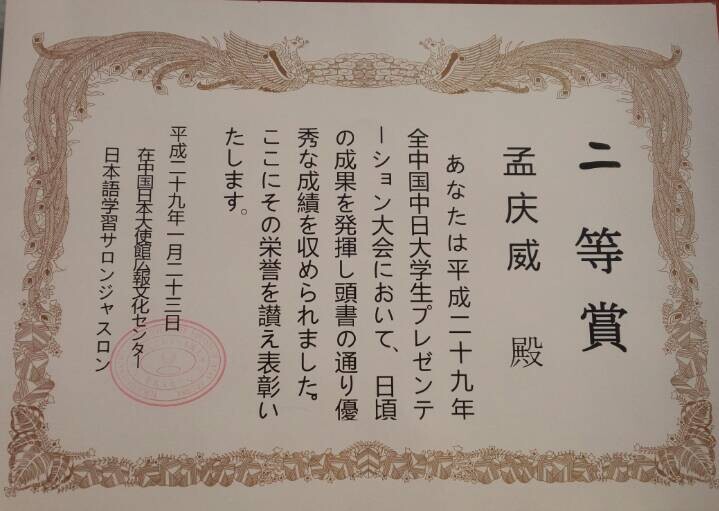 二等賞
孟庆威 殿
あなたは平成二十九年
全中国中日大学生プレゼンテ
ーション大会において、日頃
の成果を発揮し頭書の通り優
秀な成績を収められました。
ここにその栄誉を讃え表彰い
たします。
平成二十九年一月二十三日
在中国日本大使館広報文化センター
日本語学習サロンジャスロン